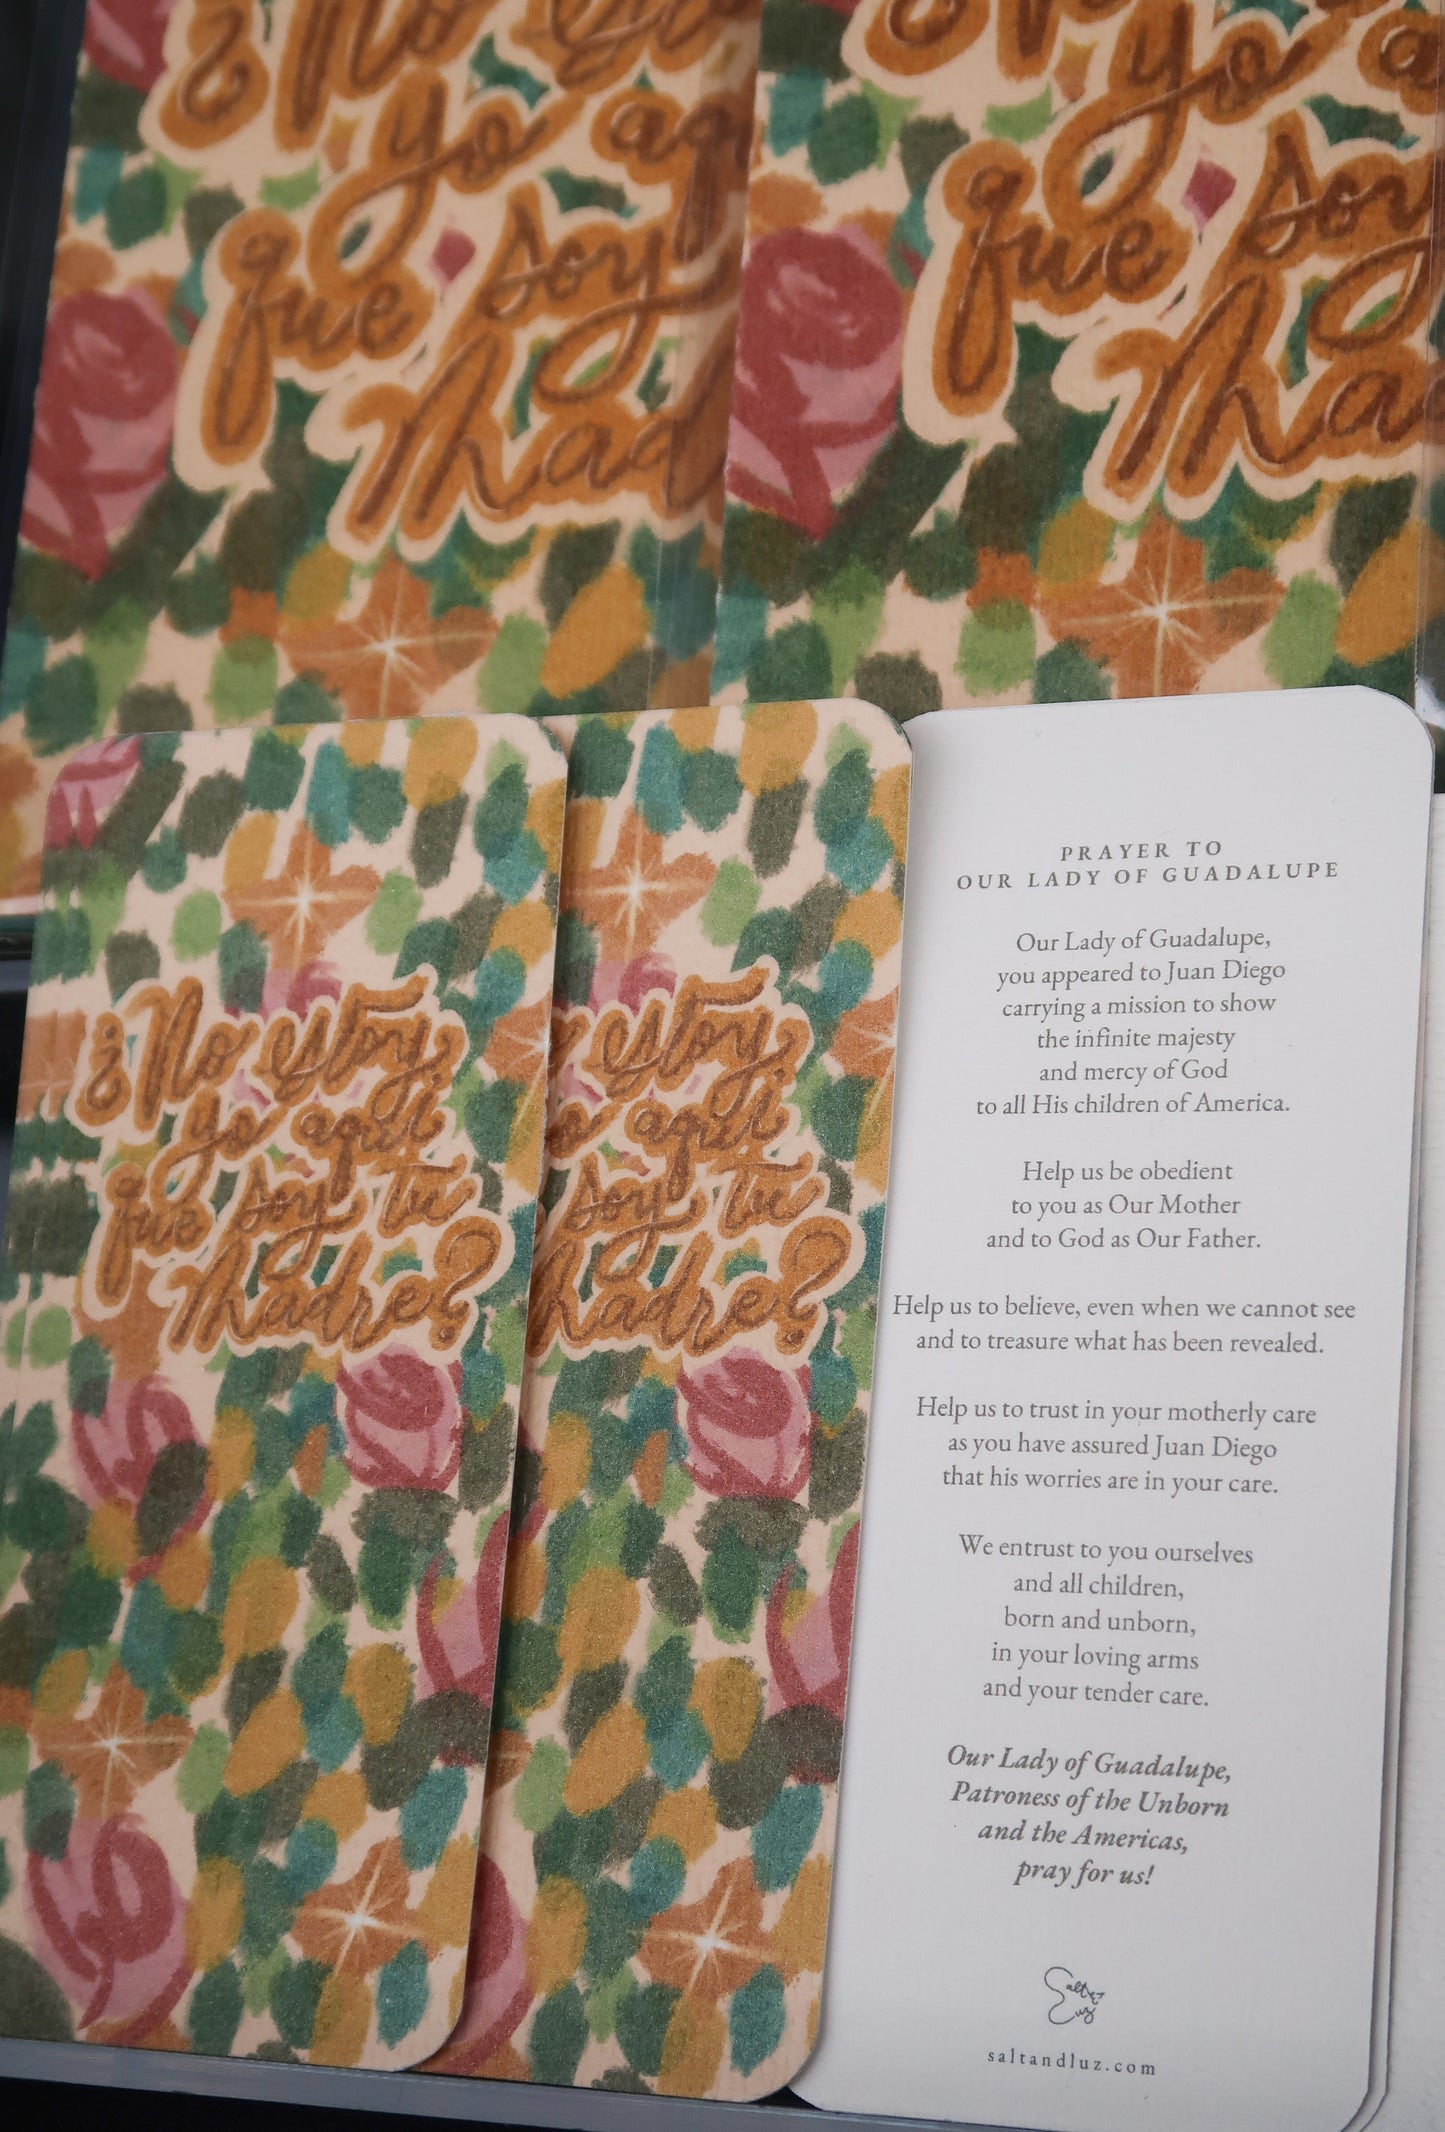 ¿No es
yo aq
que soy
Mad
yo a
que soy
Ma
¿No estoy
yo aquí
que soy tu
Madre?
estoy
aquí
soy tu
Madre?
PRAYER TO
OUR LADY OF GUADALUPE
Our Lady of Guadalupe,
you appeared to Juan Diego
carrying a mission to show
the infinite majesty
and mercy of God
to all His children of America.
Help us be obedient
to you as Our Mother
and to God as Our Father.
Help us to believe, even when we cannot see
and to treasure what has been revealed.
Help us to trust in your motherly care
as you have assured Juan Diego
that his worries are in your care.
We entrust to you ourselves
and all children,
born and unborn,
in your loving arms
and your tender care.
Our Lady of Guadalupe,
Patroness of the Unborn
and the Americas,
pray for us!
Salt &
Luz
saltandluz.com